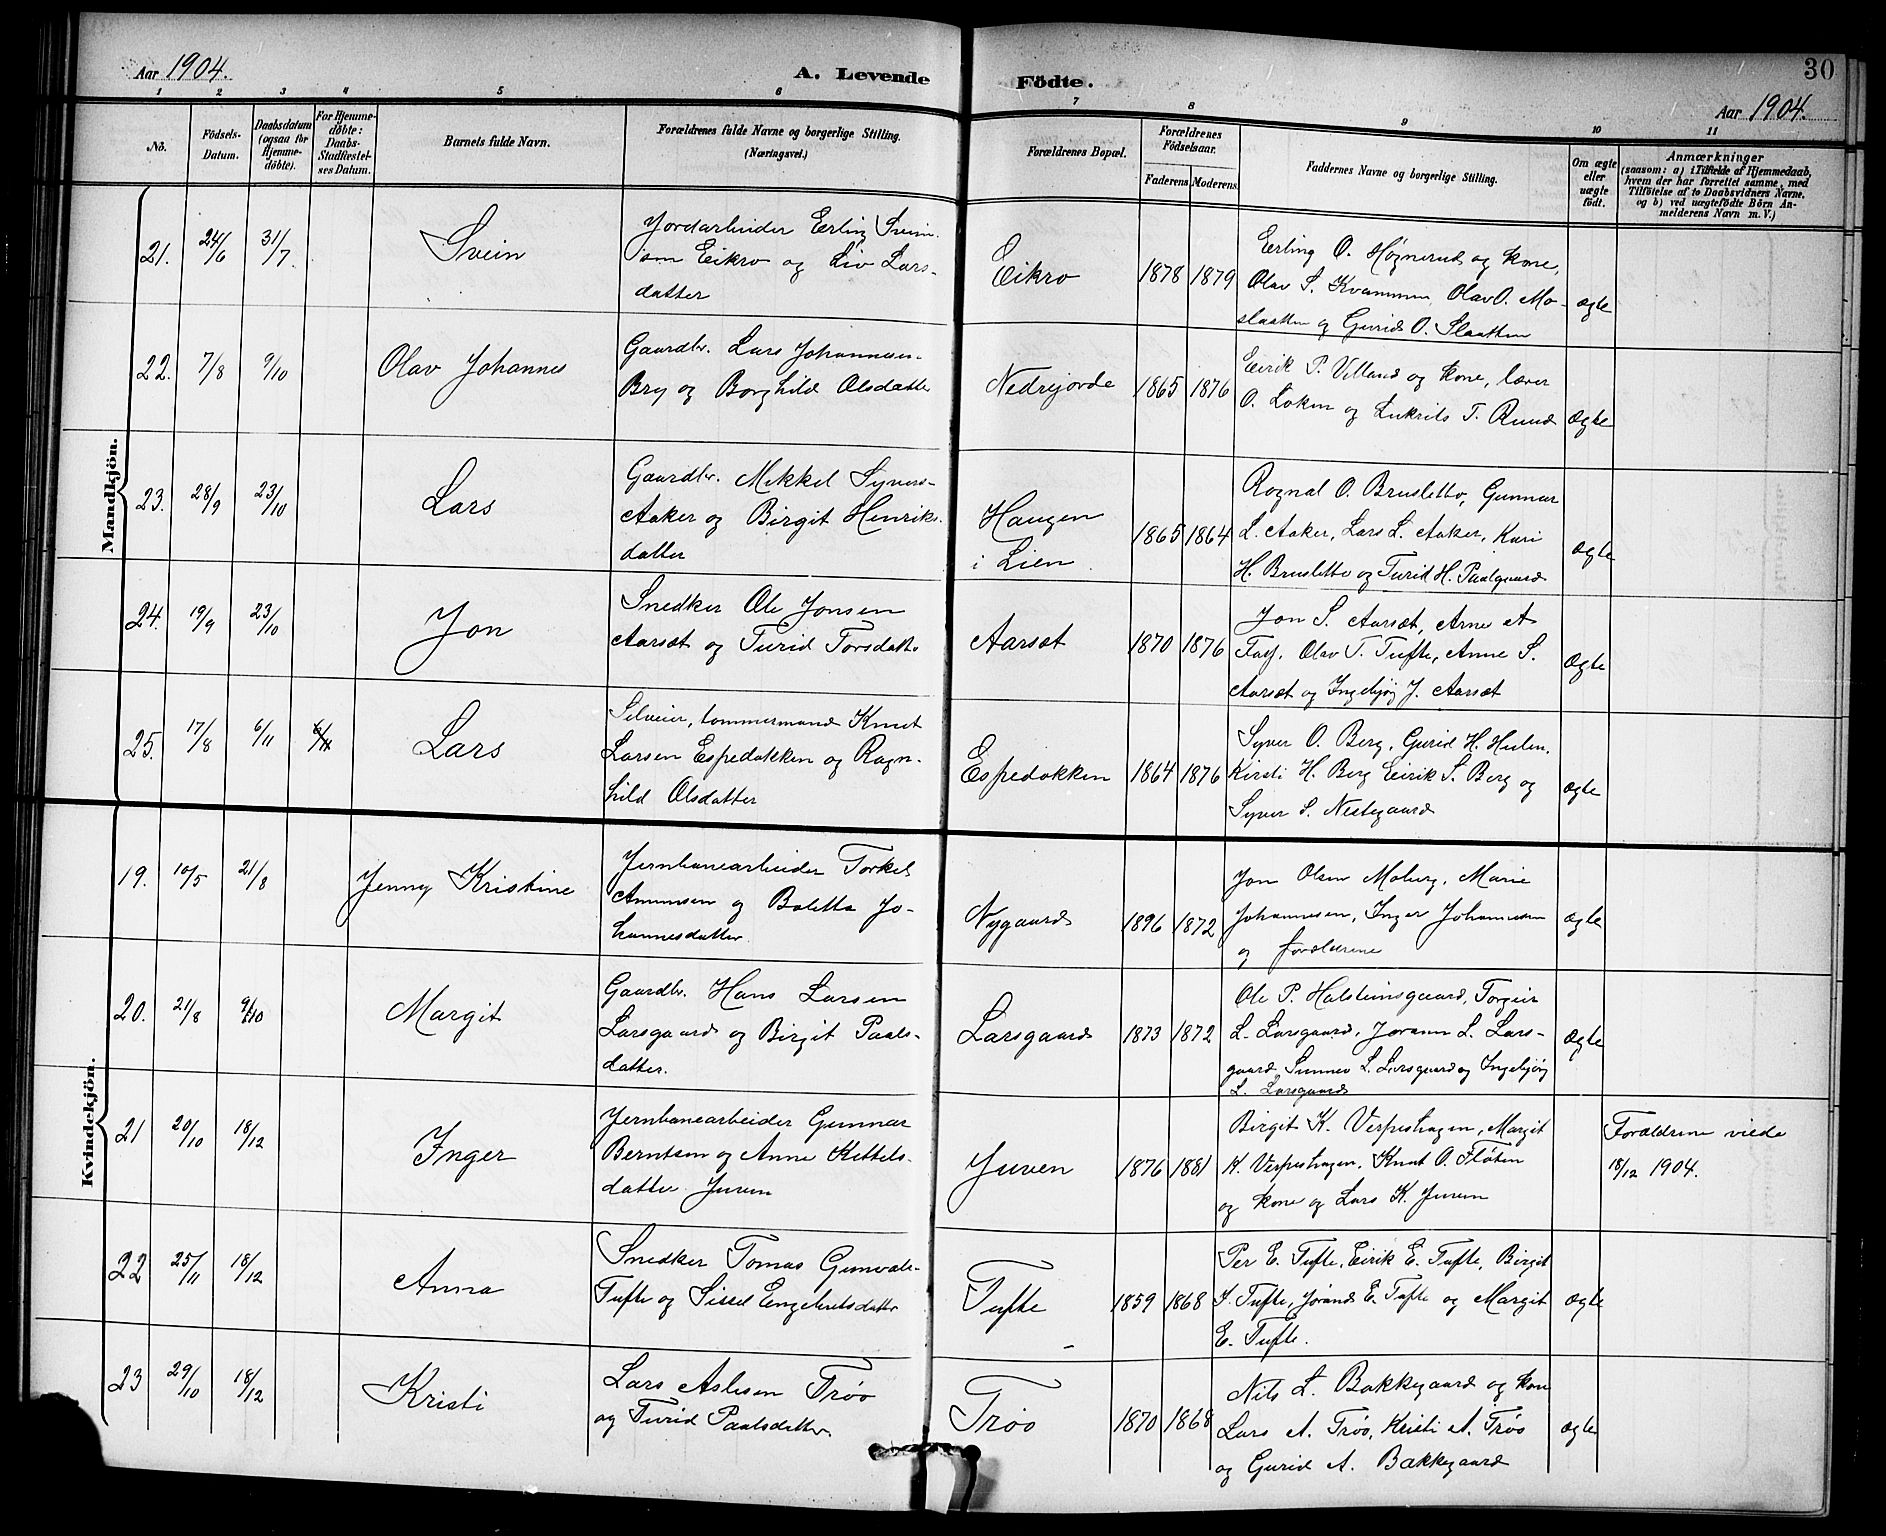 30
Aar 1904. A. Levende Födte. Aar 1904.
1 2 3 4 5 6 7 8 9 10 11
No. Födsels-Datum. Daabsdatum (ogsaa for Hjemme-döbte). For Hjemme-döbte: Daabs-Stadfæstel-ses Datum. Barnets fulde Navn. Forældrenes fulde Navne og borgerlige Stilling. (Næringsvei.) Forældrenes Bopæl. Forældrenes Födselsaar. Faderens Moderens. Faddernes Navne og borgerlige Stilling. Om ægte eller uægte födt. Anmærkninger (saasom: a) i Tilfælde af Hjemmedaab, hvem der har forrettet samme, med Tilföielse af to Daabsvidners Navne, og b) ved uægtefödte Börn An-melderens Navn m. V.)
Mandkjön.
21. 24/6 31/7. Svein
Jordarbeider Erling Svein-
søn Eikro og Liv Lars-
datter
Eikro 1878 1879
Erling O. Høgnerud og kone,
Olav S. Kvammen, Olav O. Mo-
slaatten og Gurid O. Slaatten
ægte
22. 7/8 9/10 Olav Johannes
Gaardbr. Lars Johannesen
Bry og Borghild Olsdatter
Nedrejorde 1865 1876
Eirik P. Villand og kone, lærer
O. Løken og T. Ruud
ægte
23. 28/9 23/10 Lars
Gaardbr. Mikkel Syvers-
Aaker og Birgit Henriks-
datter
Haugen
i Lien 1865 1864
Rognal O. Brusletto, Gunnar
L. Aaker, Lars L. Aaker, Kari
H. Brusletto og Turid H. Paalgaard
ægte
24. 19/9 23/10 Jon
Snedker Ole Jonsen
Aarset og Turid Torsdatter
Aarset 1870 1876
Jon S. Aarset, Arne A
Olav T. Tufte, Anne S.
Aarset og Ingebjøg J. Aarset
ægte
25. 17/8 6/11 6/11 Lars
Selveier, tømmermand Knut
Larsen Espedokken og Ragn-
hild Olsdatter
Espedokken 1864 1876
Syver O. Berg, Gurid H. Hulen,
Kirsti H. Berg Eirik S. Berg og
Syver S. Nestegaard
ægte
Kvindekjön.
19. 10/5 21/8 Jenny Kristine
Jernbanearbeider Torkel
Amunsen og Boletta Jo-
hannesdatter
Nygaard 1896 1872
Jon Olsen Moberg, Marie
Johannesen, Inger Johannesen
og forældrene
ægte
20. 21/8 9/10 Margit
Gaardbr. Hans Larsen
Larsgaard og Birgit Paals-
datter.
Larsgaard 1873 1872
Ole P. Halsteinsgaard, Torgeir
L. Larsgaard, Jorann L. Lars-
gaard, Sunnev L. Larsgaard og Ingebjøg
L. Larsgaard
ægte
21 20/10 18/12 Inger
Jernbanearbeider Gunnar
Berntsen og Anne Kittels-
datter Juven
Juven 1876 1881
Birgit K. Verpestragen, Margit
K. Verpestragen, Knut O. Fløten
og kone og Lars K. Juven
Forældrene viede
18/12 1904.
22 25/11 18/12 Anna
Snedker Tomas Gunvals-
Tufte og Sissel Engebretsdatter
Tufte 1859 1868
Per E. Tufte, Eirik E. Tufte, Birgit
S. Tufte, Jørand E. Tufte og Margit
E. Tufte.
ægte
23 29/10 18/12 Kristi
Lars Aslesen Trøo
og Turid Paalsdatter.
Trøo 1870 1868
Nils L. Bakkegaard og kone
Lars A. Trøo, Kristi A. Trøo
og Gurid A. Bakkegaard
ægte